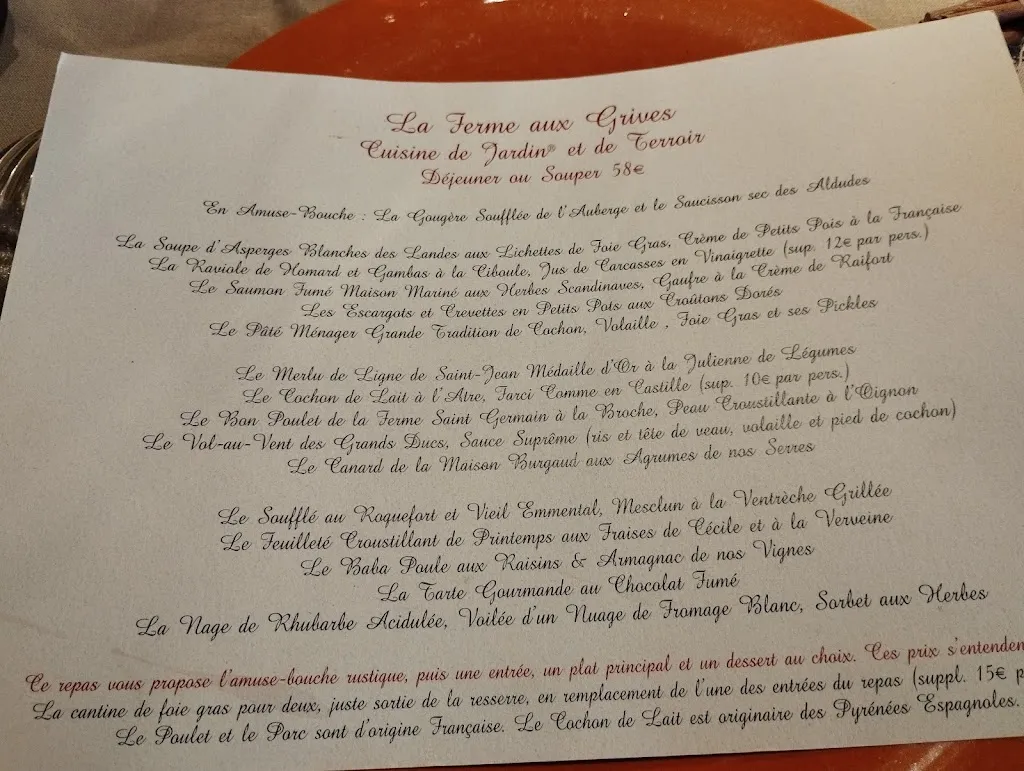 La Ferme aux Grives
Cuisine de Jardin® et de Terroir
Déjeuner ou Souper 58€
En Amuse-Bouche : La Gougère Soufflée de l'Auberge et le Saucisson sec des Aldudes
La Soupe d'Asperges Blanches des Landes aux Lichettes de Foie Gras, Crème de Petits Pois à la Française
La Raviole de Homard et Gambas à la Ciboule, Jus de Carcasses en Vinaigrette (sup. 12€ par pers.)
Le Saumon Fumé Maison Mariné aux Herbes Scandinaves, Gaufre à la Crème de Raifort
Les Escargots et Crevettes en Petits Pots aux Croûtons Dorés
Le Pâté Ménager Grande Tradition de Cochon, Volaille , Foie Gras et ses Pickles
Le Merlu de Ligne de Saint-Jean Médaille d'Or à la Julienne de Légumes
Le Cochon de Lait à l'Atre, Farci Comme en Castille (sup. 10€ par pers.)
Le Bon Poulet de la Ferme Saint Germain à la Broche, Peau Croustillante à l'Oignon
Le Vol-au-Vent des Grands Ducs, Sauce Suprême (ris et tête de veau, volaille et pied de cochon)
Le Canard de la Maison Burgaud aux Agrumes de nos Serres
Le Soufflé au Roquefort et Vieil Emmental, Mesclun à la Ventrèche Grillée
Le Feuilleté Croustillant de Printemps aux Fraises de Cécile et à la Verveine
Le Baba Poule aux Raisins & Armagnac de nos Vignes
La Tarte Gourmande au Chocolat Fumé
La Nage de Rhubarbe Acidulée, Voilée d'un Nuage de Fromage Blanc, Sorbet aux Herbes
Ce repas vous propose l'amuse-bouche rustique, puis une entrée, un plat principal et un dessert au choix. Ces prix s'entenden
La cantine de foie gras pour deux, juste sortie de la resserre, en remplacement de l'une des entrées du repas (suppl. 15€ p
Le Poulet et le Porc sont d'origine Française. Le Cochon de Lait est originaire des Pyrénées Espagnoles.